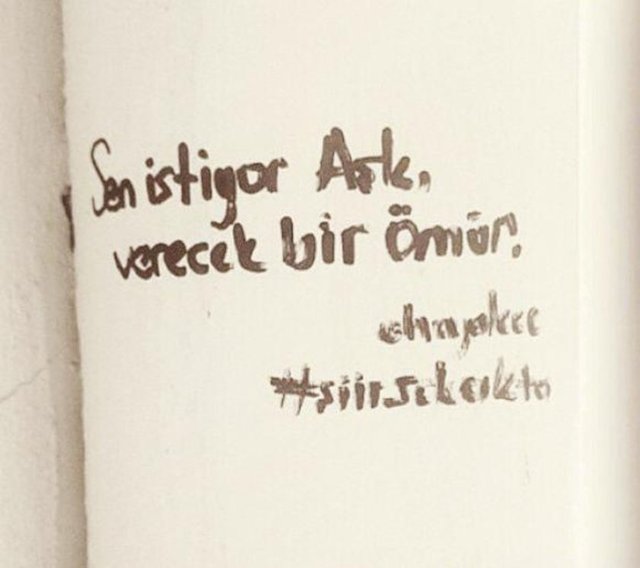 Sen istiyor Aşk,
verecek bir Ömür.
#şiirsokakta